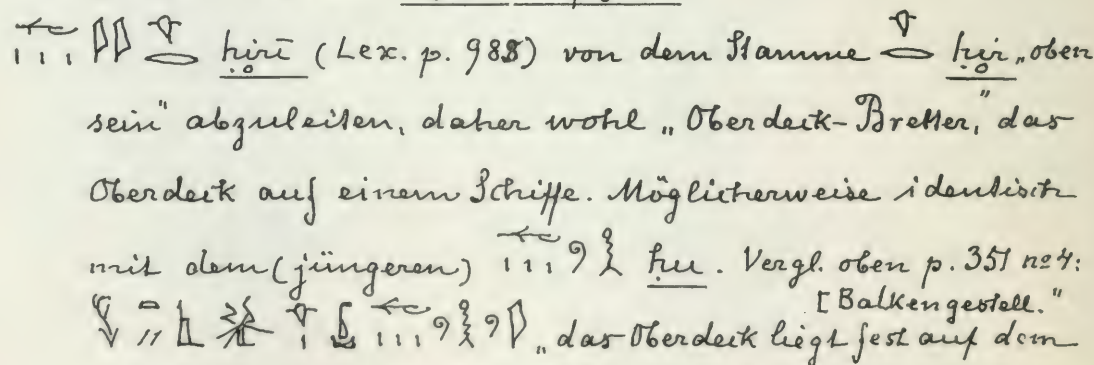 ḥirī (Lex. p. 988) von dem Stamme ḥir „oben
sein" abzuleiten, daher wohl „Oberdeck-Bretter," das
Oberdeck auf einem Schiffe. Möglicherweise identisch
mit dem (jüngeren) ḥu. Vergl. oben p. 351 no 4:
„das Oberdeck liegt fest auf dem
[Balkengestell."